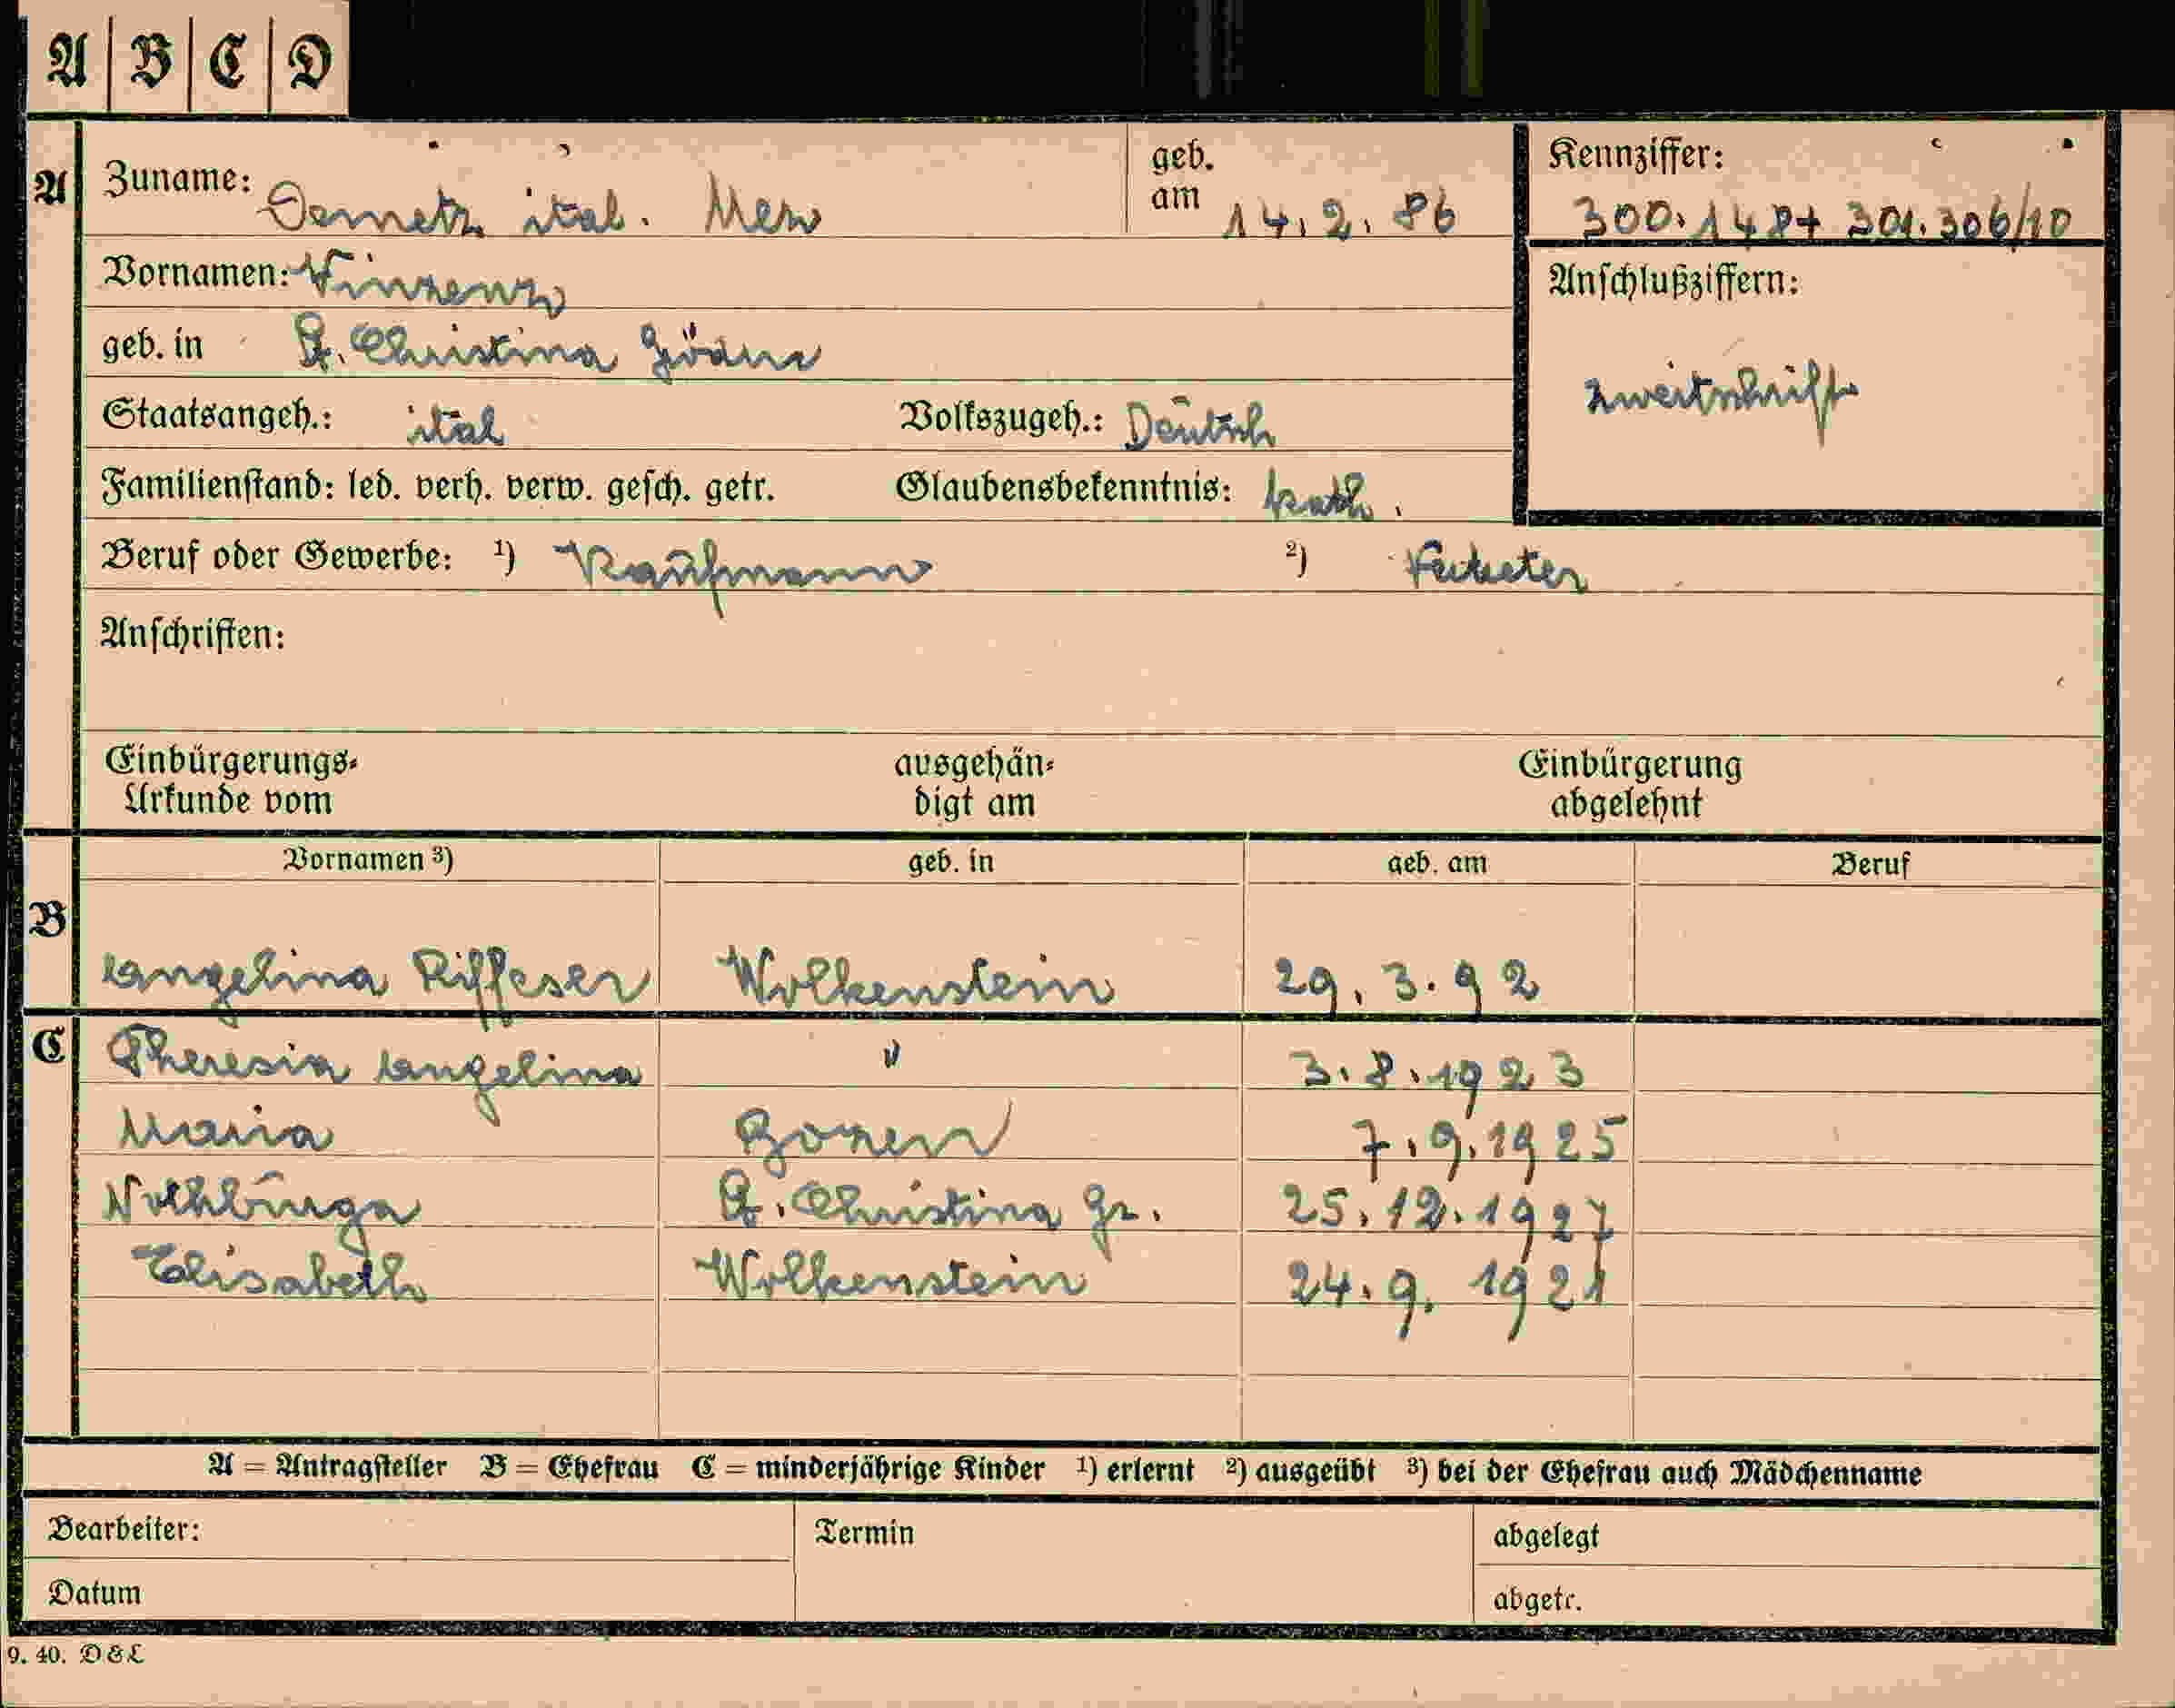 A B C D
A Zuname: Demetz ital. geb. am 14.2.86 Kennziffer: 300.1487 301.306/10
Vornamen: Vinzenz Anschlußziffern:
geb. in St. Christina Gröden
Staatsangeh.: ital Volkszugeh.: Deutsch Zweitschrift
Familienstand: led. verh. verw. gesch. getr. Glaubensbekenntnis: kath.
Beruf oder Gewerbe: 1) Kaufmann 2) Vertreter
Anschriften:
Einbürgerungs-Urkunde vom ausgehändigt am Einbürgerung abgelehnt
Vornamen 3) geb. in geb. am Beruf
B Angelina Riffeser Wolkenstein 29.3.92
C Theresia Angelina " 3.8.1923
Maria Bozen 7.9.1925
Nothburga St. Christina Gr. 25.12.1927
Elisabeth Wolkenstein 24.9.1921
A = Antragsteller B = Ehefrau C = minderjährige Kinder 1) erlernt 2) ausgeübt 3) bei der Ehefrau auch Mädchenname
Bearbeiter: Termin abgelegt
Datum abgetr.
9. 40. D & L